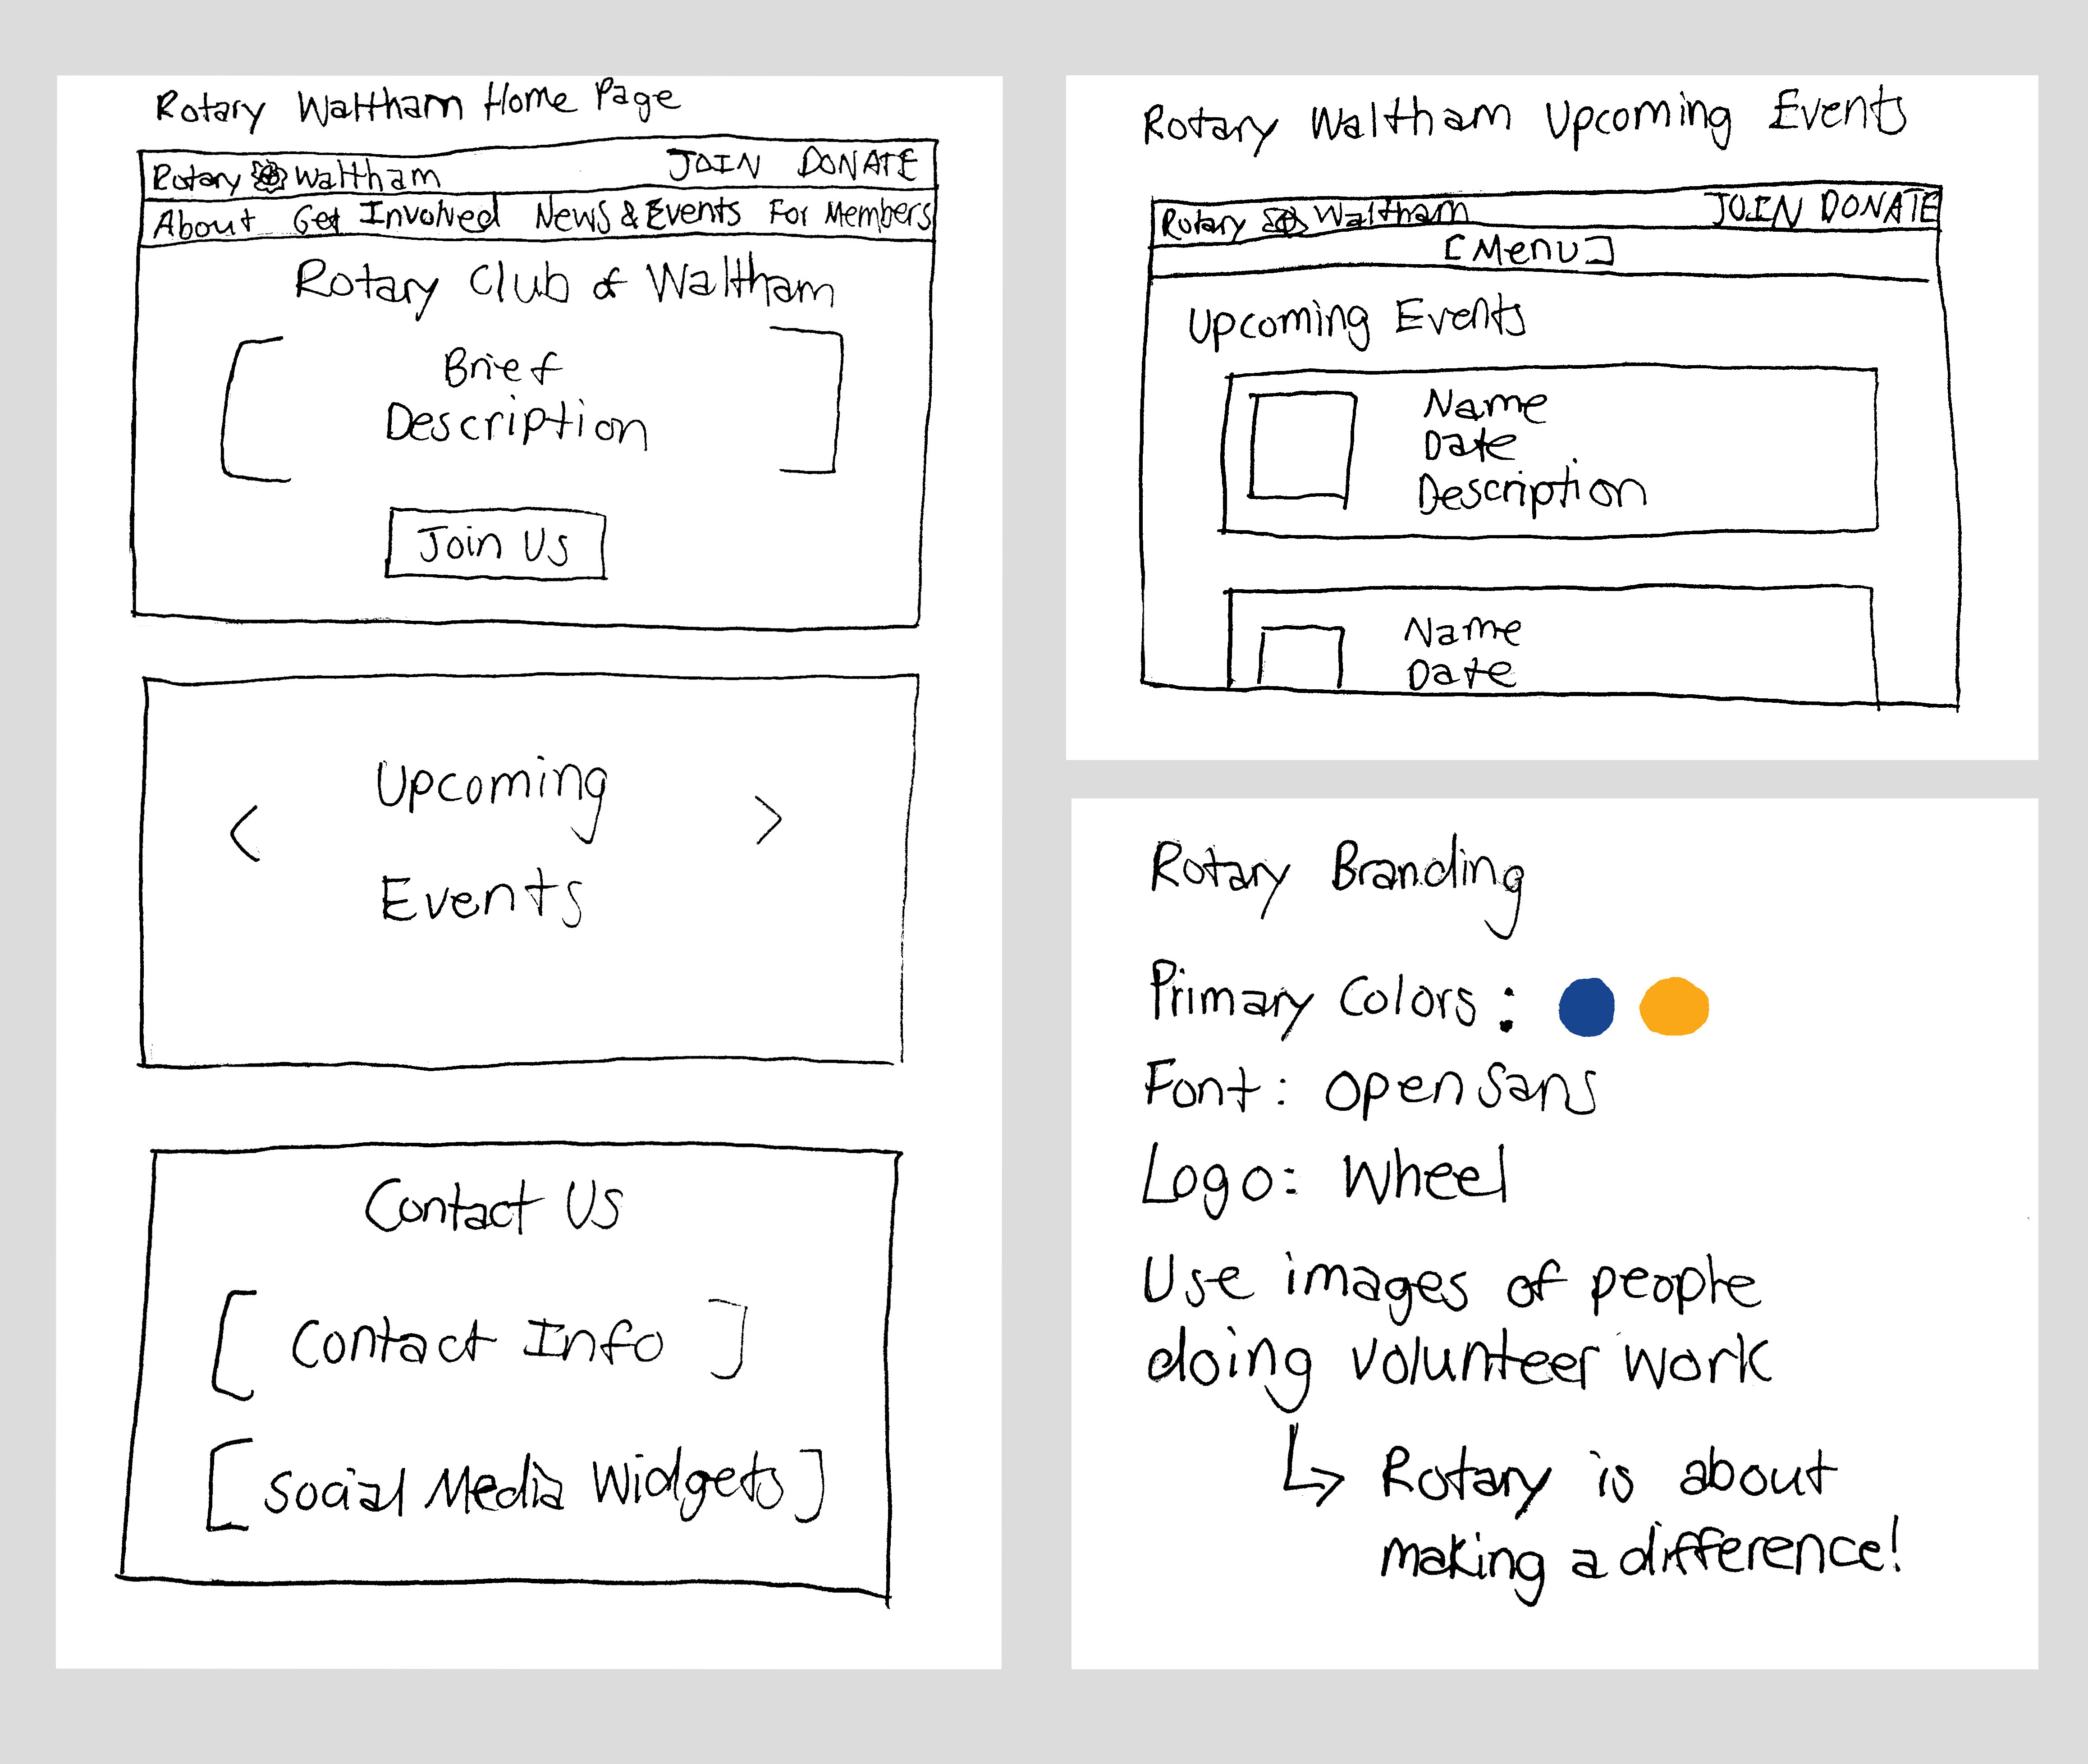 Rotary Waltham Home Page
Rotary Waltham JOIN DONATE
About Get Involved News & Events For Members
Rotary Club of Waltham
[ Brief
Description ]
Join Us
< Upcoming >
Events
Contact Us
[ Contact Info ]
[ Social Media Widgets ]
Rotary Waltham Upcoming Events
Rotary Waltham JOIN DONATE
[Menu]
Upcoming Events
Name
Date
Description
Name
Date
Rotary Branding
Primary Colors:
Font: Open Sans
Logo: Wheel
Use images of people
doing volunteer work
↳ Rotary is about
making a difference!